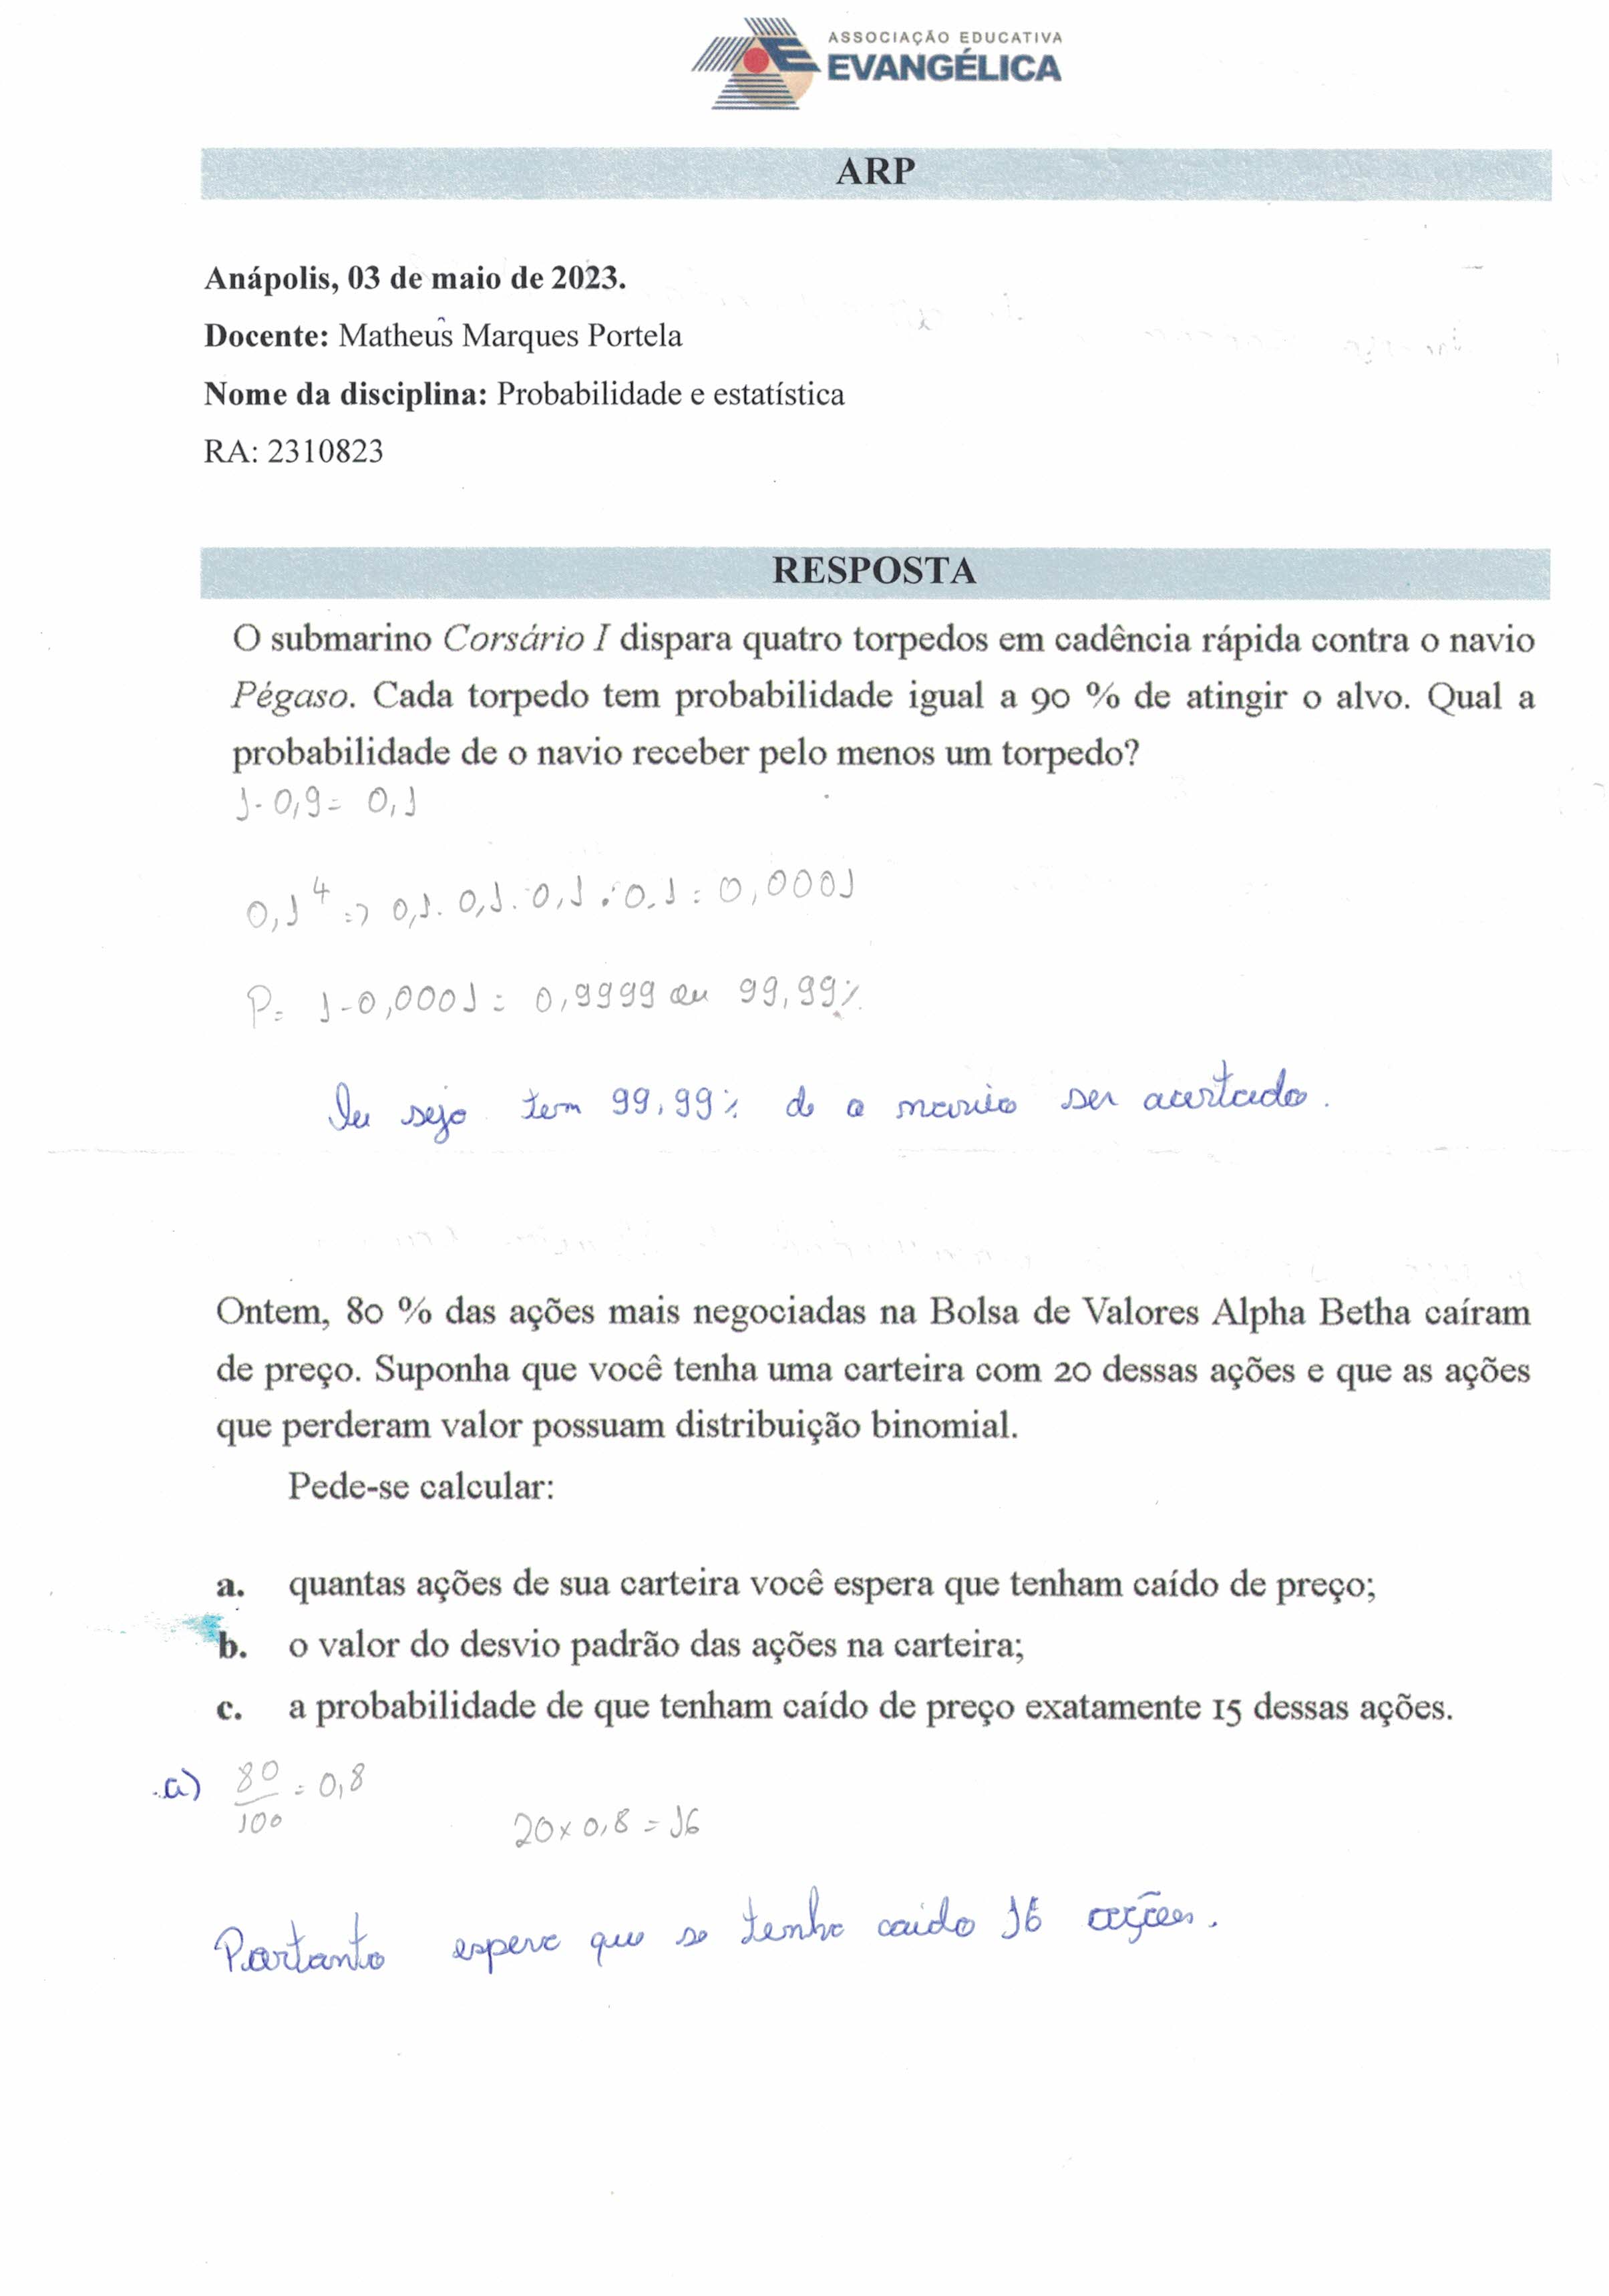 ASSOCIAÇÃO EDUCATIVA
EVANGÉLICA
ARP
Anápolis, 03 de maio de 2023.
Docente: Matheus Marques Portela
Nome da disciplina: Probabilidade e estatística
RA: 2310823
RESPOSTA
O submarino Corsário I dispara quatro torpedos em cadência rápida contra o navio
Pégaso. Cada torpedo tem probabilidade igual a 90 % de atingir o alvo. Qual a
probabilidade de o navio receber pelo menos um torpedo?
1-0,9= 0,1
0,1⁴ => 0,1. 0,1. 0,1 . 0,1 = 0,0001
P= 1-0,0001 = 0,9999 ou 99,99%
Ou seja tem 99,99% de o navio ser acertado.
Ontem, 80 % das ações mais negociadas na Bolsa de Valores Alpha Betha caíram
de preço. Suponha que você tenha uma carteira com 20 dessas ações e que as ações
que perderam valor possuam distribuição binomial.
Pede-se calcular:
a. quantas ações de sua carteira você espera que tenham caído de preço;
b. o valor do desvio padrão das ações na carteira;
c. a probabilidade de que tenham caído de preço exatamente 15 dessas ações.
a) 80/100 = 0,8
20x0,8 = 16
Portanto espera que se tenha caido 16 ações.